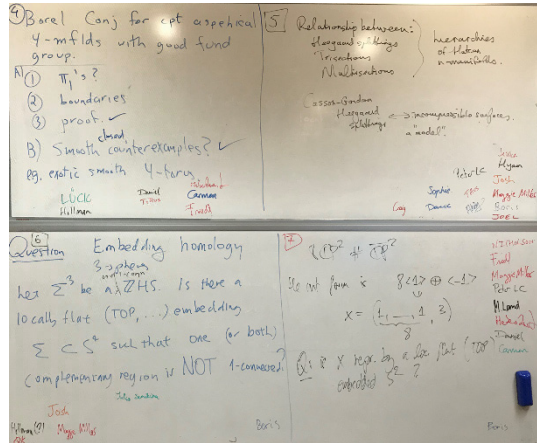 4 Borel Conj for cpt aspherical
4-mflds with good fund
group.
A) 1 π₁'s?
2 boundaries
3 proof. ✓
B) Smooth closed counterexamples? ✓
eg. exotic smooth 4-torus
LÜCK
Hillman
Daniel
Carmen
Friedl
5 Relationship between:
Heegaard splittings
Trisections
Multisections
hierarchies
of Haken
n-manifolds.
Casson-Gordon
Heegaard splittings ↔ incompressible surfaces.
a "model".
Peter LC
Sophie
Josh
Maggie Miller
Boris
JOEL
Question 6 Embedding homology
3-spheres
Let Σ³ be a ZHS. Is there a
locally flat (TOP, ...) embedding
Σ ⊂ S⁴ such that one (or both)
complementary region is NOT 1-connected?
Josh
Hillman (?)
Maggie Miller
Boris
7
int form is 8<1> ⊕ <-1>
x = (1, ..., 1, 3)
8
Q: is x repr. by a loc flat (TOP)
embedded S² ?
Maggie Miller
Peter LC
M. Land
Daniel
Carmen
Boris